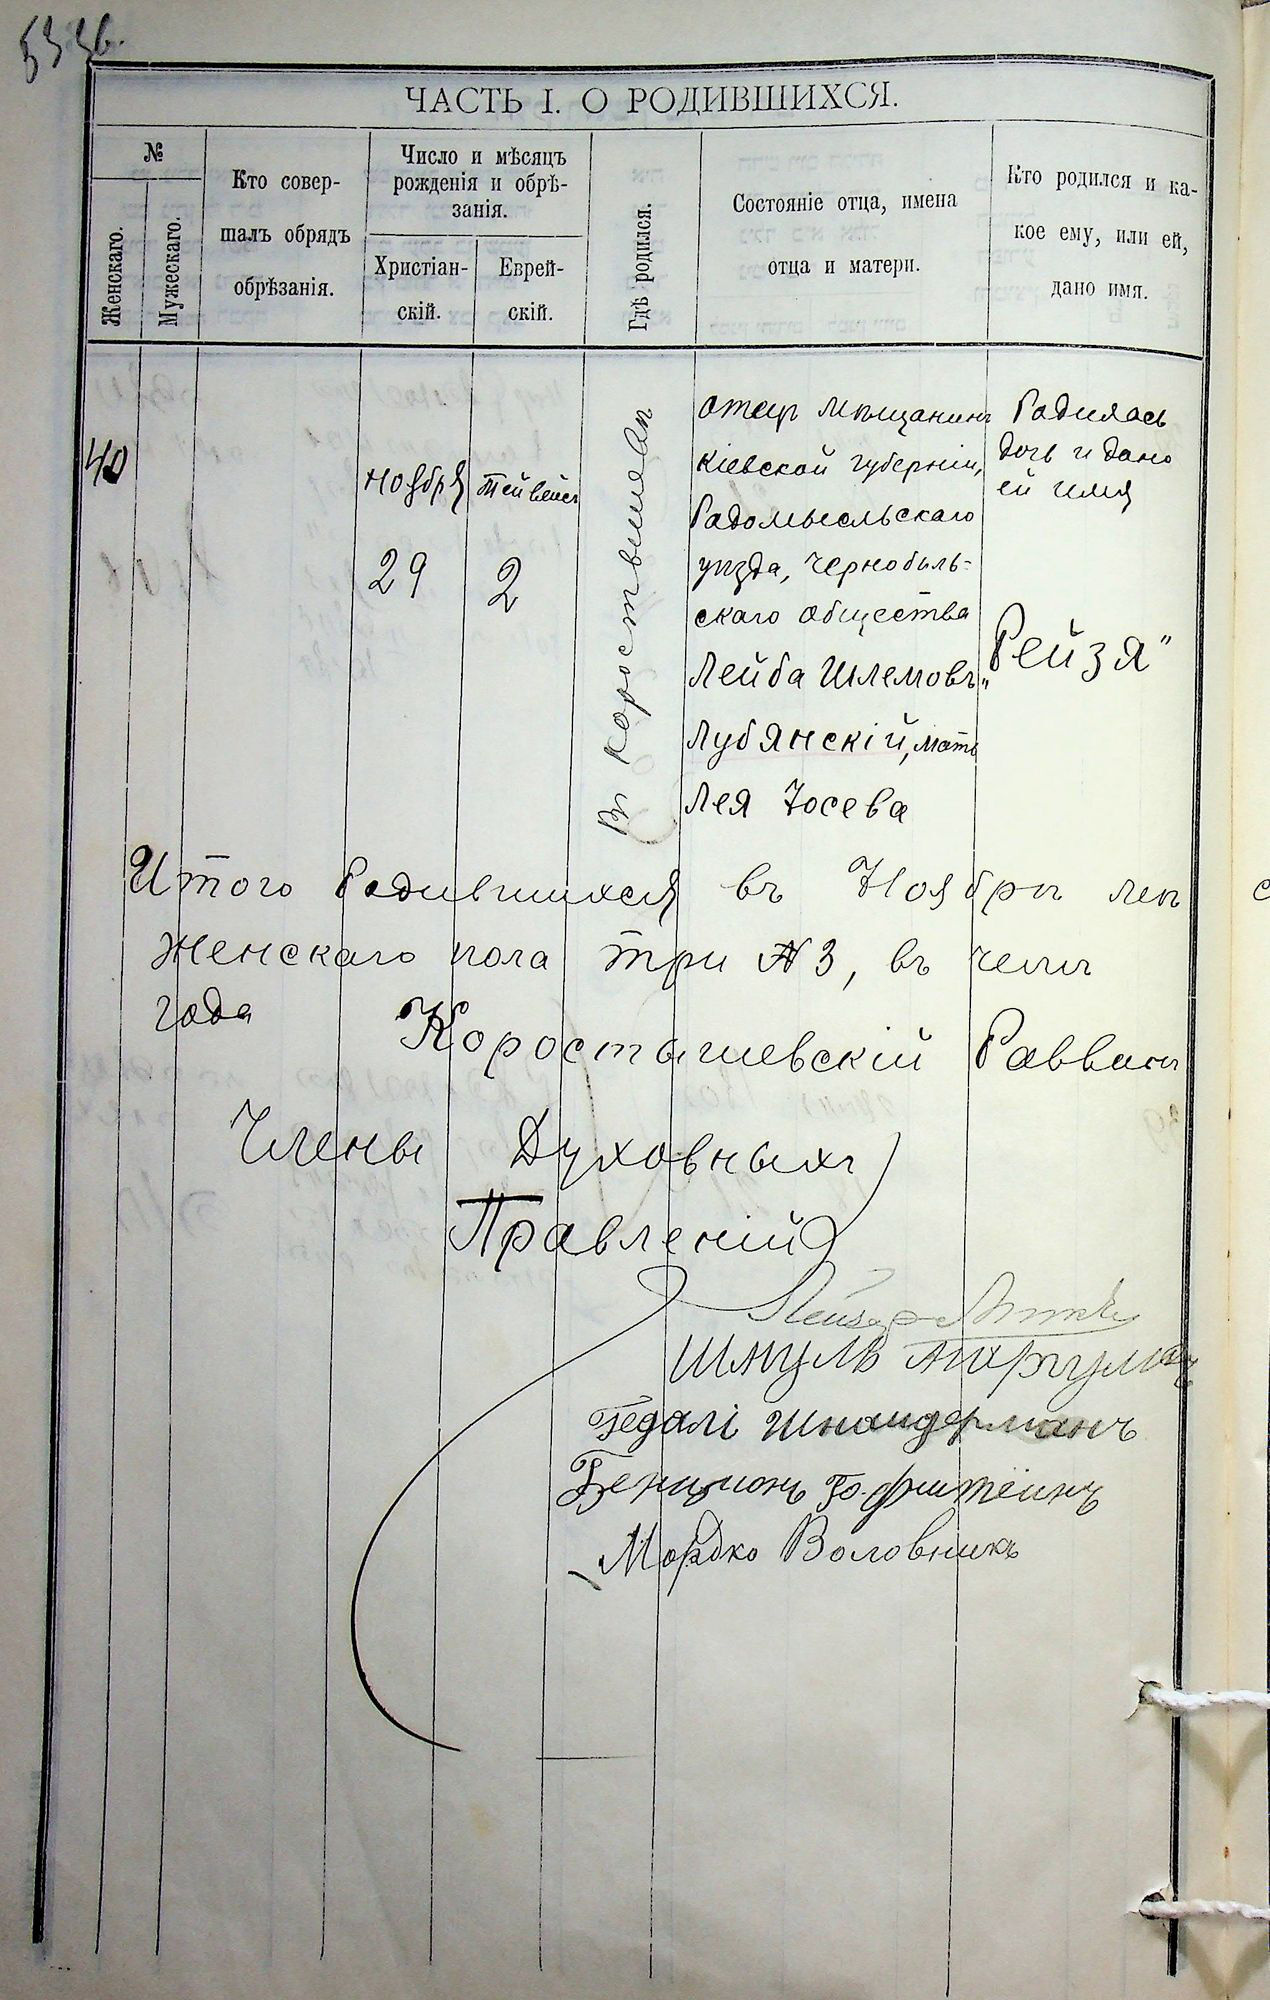 ЧАСТЬ I. О РОДИВШИХСЯ.
№
Женскаго.
Мужескаго.
Кто совер-
шалъ обрядъ
обрѣзанія.
Число и мѣсяцъ
рожденія и обрѣ-
занія.
Христіан-
скій.
Еврей-
скій.
Гдѣ родился.
Состояніе отца, имена
отца и матери.
Кто родился и ка-
кое ему, или ей,
дано имя.
40
Ноября
29
Тейвейсъ
2
Въ Коростышевѣ
Отецъ Мѣщанинъ
Кіевской губерніи,
Радомысльскаго
уѣзда, Чернобыль-
скаго общества
Лейба Шлемовъ
Лубянскій, мать
Лея Іосева
Родилась
дочь и дано
ей имя
„Рейзя"
Итого Родившихся въ Ноябрѣ
Женскаго пола три № 3, въ чемъ
года
Коростышевскій Раввинъ
Члены Духовныхъ
Правленій
Шмуль
Гедалі Шнайдерманъ
Бенціонъ Гофштейнъ
Мордко Воловникъ